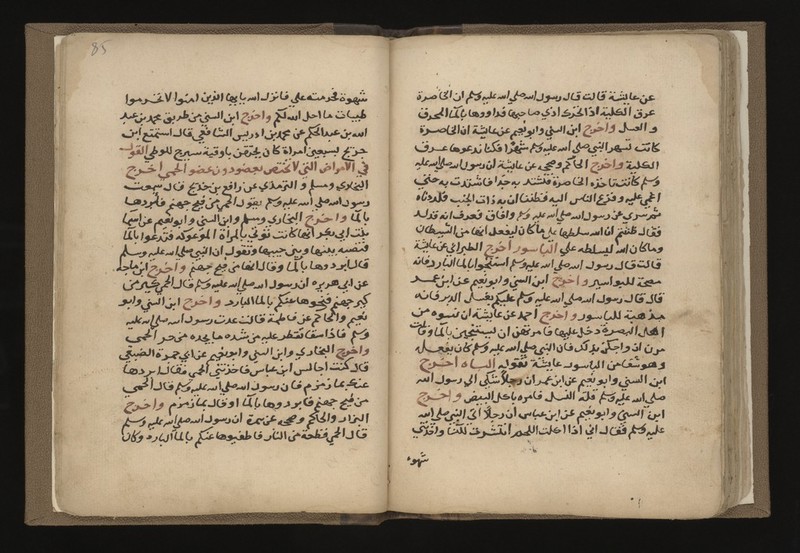 عن عايشة قالت قال رسول الله صلى الله عليه وسلم ان الخاصرة
عرق الكلية اذا تحرك اذى صاحبها فداووها بالماء المحرق
والعسل واخرج ابن السني وابو نعيم عن عايشة ان الخاصرة
كانت بالنبي صلى الله عليه وسلم شهرا فكنا ندعوها عرق
الكلية واخرج الحاكم وصححه عن عايشة ان رسول الله صلى الله عليه
وسلم كانت تاخذه الخاصرة فتشتد به جدا فاشتدت به حتى
اغمي عليه وفزع الناس اليه فظننا ان به ذات الجنب فلددناه
ثم سري عن رسول الله صلى الله عليه وسلم وافاق فعرف انه قد لد
فقال ظننتم ان الله سلطها علي ما كان ليفعل انها من الشيطان
وما كان الله ليسلطه علي الباسور اخرج الطبراني عن عايشة
قالت قال رسول الله صلى الله عليه وسلم استنجوا بالماء البارد فانه
مصحة للبواسير واخرج ابن السني وابو نعيم عن ابن عمر
قال قال رسول الله صلى الله عليه وسلم عليكم بغسل الدبر فانه
مذهبة للباسور واخرج احمد عن عايشة ان نسوة من
اهل البصرة دخلن عليها فامرتهن ان يستنجين بالماء وقالت
مرن ازواجكن بذلك فان النبي صلى الله عليه وسلم كان يفعله
وهو شفا من الباسور عايشة تقوله الباه اخرج
ابن السني وابو نعيم عن ابن عمر ان رجلا شكى الى رسول الله
صلى الله عليه وسلم قلة النسل فامره باكل البيض واخرج
ابن السني وابو نعيم عن ابن عباس ان رجلا اتى النبي صلى الله
عليه وسلم فقال اني اذا اكلت اللحم انتشرت للنسا واخذتني
شهوة
85
شهوة فحرمته علي فانزل الله يا ايها الذين امنوا لا تحرموا
طيبات ما احل الله لكم واخرج ابن السني من طريق محمد بن عبد
الله بن عبد الحكم عن محمد بن ادريس الشافعي قال استمتع ابن
جريج بسبعين امراة كان يحتقن باوقية سيرج للوطي القول
في الامراض التي لا تختص بعضو دون عضو الحمى اخرج
البخاري ومسلم والترمذي عن رافع بن خديج قال سمعت
رسول الله صلى الله عليه وسلم يقول الحمى من فيح جهنم فابردوها
بالماء واخرج البخاري ومسلم وابن السني وابو نعيم عن اسما
بنت ابي بكر انها كانت تؤتى بالمراة الموعوكة فتدعوا بالماء
فتصبه بينها وبين جيبها وتقول ان النبي صلى الله عليه وسلم
قال ابردوها بالماء وقال انها من فيح جهنم واخرج ابن ماجه
عن ابي هريرة ان رسول الله صلى الله عليه وسلم قال الحمى كير من
كير جهنم فنحوها عنكم بالماء البارد واخرج ابن السني وابو
نعيم والحاكم عن فاطمة قالت عدت رسول الله صلى الله عليه
وسلم فاذا سقا تقطر عليه من شدة ما يجده من حر الحمى
واخرج البخاري وابن السني وابو نعيم عن ابي جمرة الضبعي
قال كنت اجالس ابن عباس فاخذتني الحمى فقال ابردها
عنك بما زمزم فان رسول الله صلى الله عليه وسلم قال الحمى
من فيح جهنم فابردوها بالماء او قال بما زمزم واخرج
البزار والحاكم وصححه عن سمرة ان رسول الله صلى الله عليه وسلم
قال الحمى قطعة من النار فاطفيوها عنكم بالماء البارد وكان